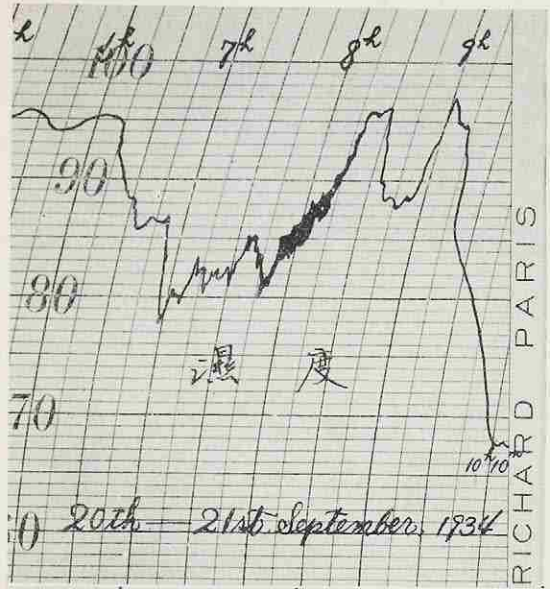 h 6h 7h 8h 9h
100
90
80
濕 度
70
10h 10m
60 20th — 21st September, 1934
RICHARD PARIS